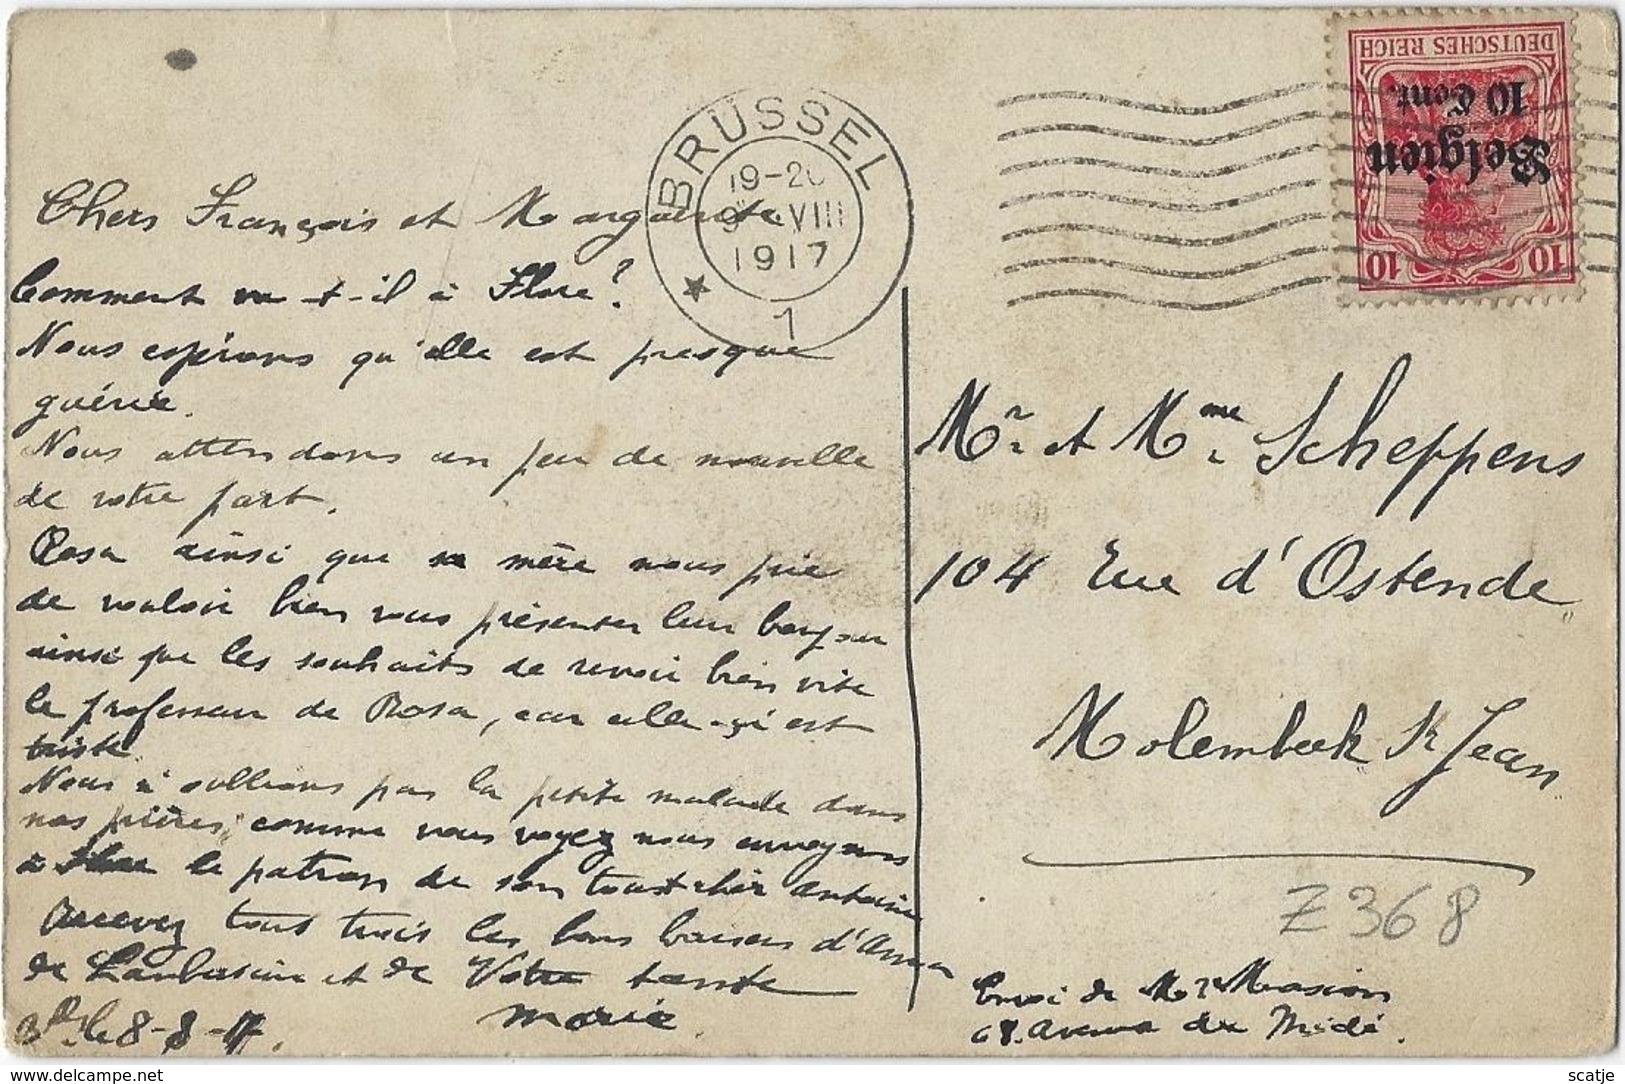 BRÜSSEL
19-20
9 VIII
1917
1
DEUTSCHES REICH
Belgien
10 Cent.
10 10
Chers François et Marguerite
Comment va-t-il à Flore?
Nous espérons qu'elle est presque
guérie.
Nous attendons un peu de nouvelle
de votre part.
Rosa ainsi que sa mère nous prie
de vouloir bien vous présenter leur bonjour
ainsi que les souhaits de revoir bien vite
le professeur de Rosa, car celle-çi est
triste.
Nous n'oublions pas la petite malade dans
nos prières, comme vous voyez nous envoyons
à Flore le patron de son tout cher Antoine
Recevez tous trois les bons baisers d'
de et de Votre tante
Marie.
le 8-8-17.
Mr et Mme Scheppens
104 Rue d'Ostende
Molembeek St Jean
Z368
Envoi de Mr Massion
68. Avenue du Midi.
scatje